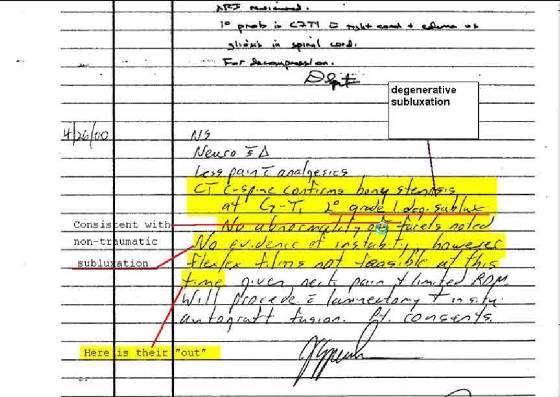 MRI reviewed.
1° prob is C7T1 c̄ right cord + edema vs
gliosis in spinal cord.
For decompression.
degenerative
subluxation
4/26/00
NS
Neuro s̄ Δ
Less pain c̄ analgesics
CT C-spine confirms bony stenosis
at C7-T1, 2° grade 1 deg. sublux
No abnormality facets noted
No evidence of instability, however
flex/ex films not feasible at this
time given neck pain + limited ROM.
Will procede c̄ laminectomy + insitu
autograft fusion. Pt. consents.
Consistent with
non-traumatic
subluxation
Here is their "out"